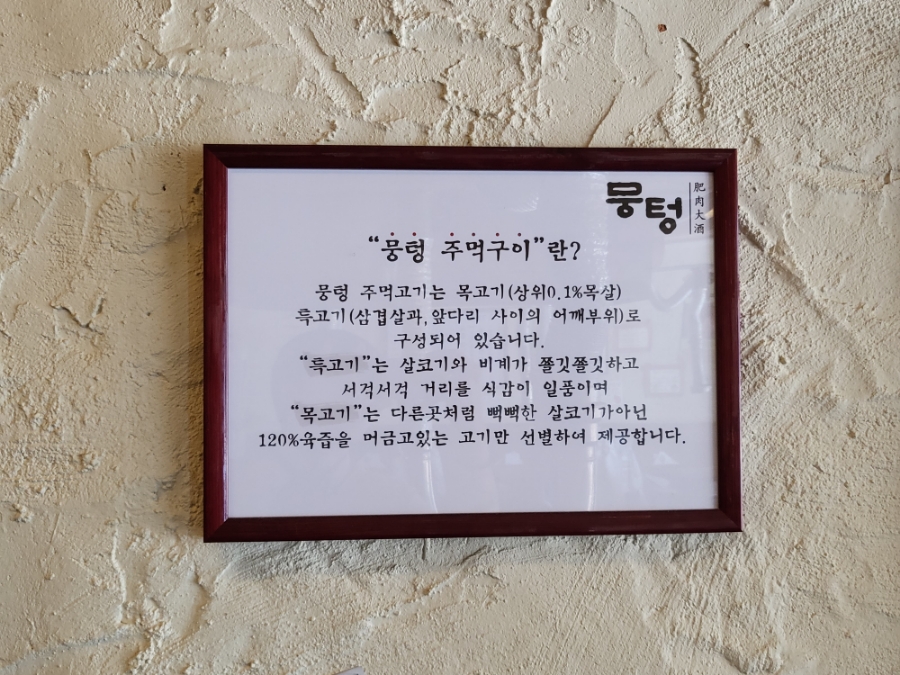 뭉텅
肥肉大酒
“뭉텅 주먹구이”란?
뭉텅 주먹고기는 목고기(상위0.1%목살)
특고기(삼겹살과,앞다리 사이의 어깨부위)로
구성되어 있습니다.
“특고기”는 살코기와 비계가 쫄깃쫄깃하고
서걱서걱 거리를 식감이 일품이며
“목고기”는 다른곳처럼 뻑뻑한 살코기가아닌
120%육즙을 머금고있는 고기만 선별하여 제공합니다.